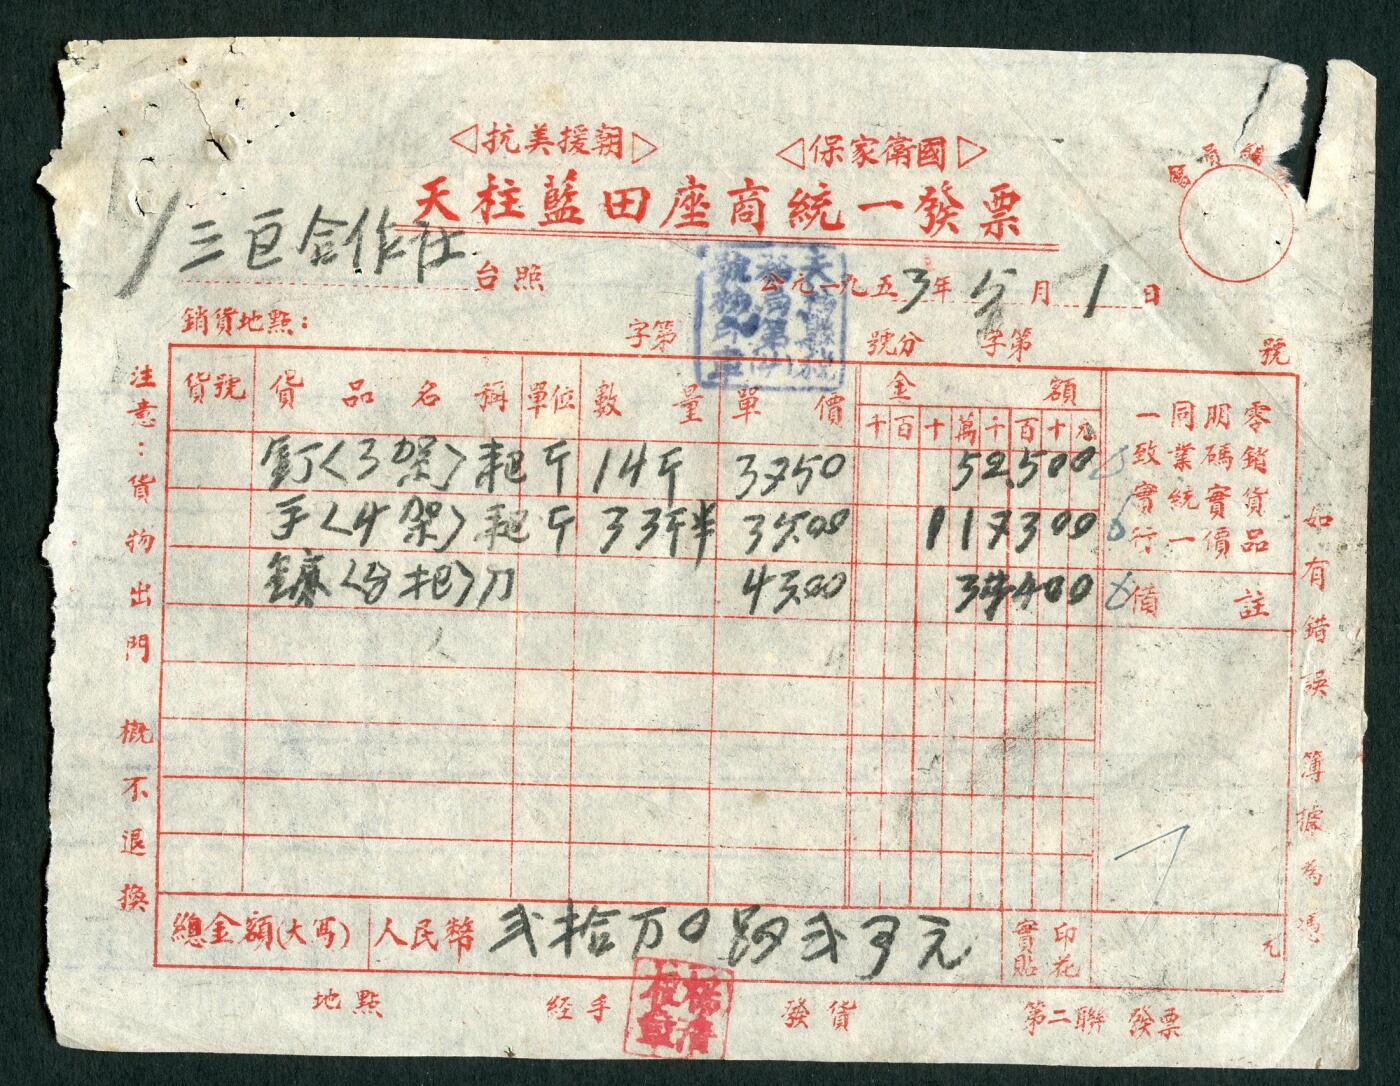 ◁抗美援朝▷ ◁保家衛國▷
天柱藍田座商統一發票
三區合作社 台照
公元一九五3年 5月 1日
銷貨地點： 字第 號分 字第 號
貨號 貨品名稱 單位 數量 單價 金額
千百十萬千百十元
釘〈3架〉耙 斤 14斤 3750 52500
手〈4架〉耙 斤 33斤半 3500 117300
鐮〈8把〉刀 4300 34400
零銷貨品
明碼實價
同業統一
一致實行
備註
總金額(大寫) 人民幣 弍拾万0 弍 元
實貼印花 元
地點 經手 發貨 第二聯 發票
注意：貨物出門概不退換
如有錯誤簿據為憑